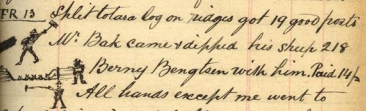 FR 13 Split totara log on ridges got 19 good posts
Mr. Bak came & dipped his sheep 218
Berny Bengtsen with him. Paid 14/2
All hands except me went to